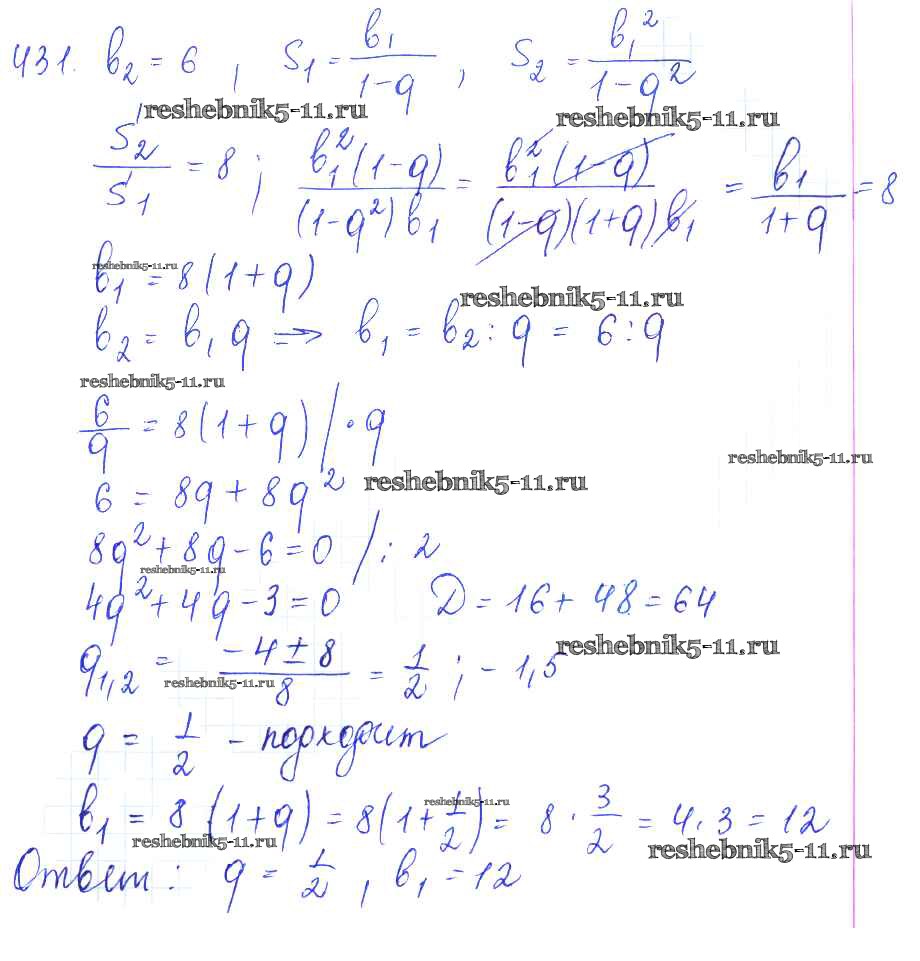 431. b₂ = 6 , S₁ = b₁/(1-q) , S₂ = b₁²/(1-q²)
reshebnik5-11.ru reshebnik5-11.ru
S₂/S₁ = 8 ; b₁²(1-q)/((1-q²)b₁) = b₁²(1-q)/((1-q)(1+q)b₁) = b₁/(1+q) = 8
reshebnik5-11.ru
b₁ = 8(1+q)
reshebnik5-11.ru
b₂ = b₁q => b₁ = b₂ : q = 6 : q
reshebnik5-11.ru
6/q = 8(1+q) / · q
reshebnik5-11.ru
6 = 8q + 8q²
reshebnik5-11.ru
8q² + 8q - 6 = 0 / : 2
reshebnik5-11.ru
4q² + 4q - 3 = 0 D = 16 + 48 = 64
reshebnik5-11.ru
q₁,₂ = (-4 ± 8)/8 = 1/2 ; -1,5
reshebnik5-11.ru
q = 1/2 - подходит
reshebnik5-11.ru
b₁ = 8(1+q) = 8(1+1/2) = 8 · 3/2 = 4 · 3 = 12
reshebnik5-11.ru reshebnik5-11.ru
Ответ: q = 1/2 , b₁ = 12